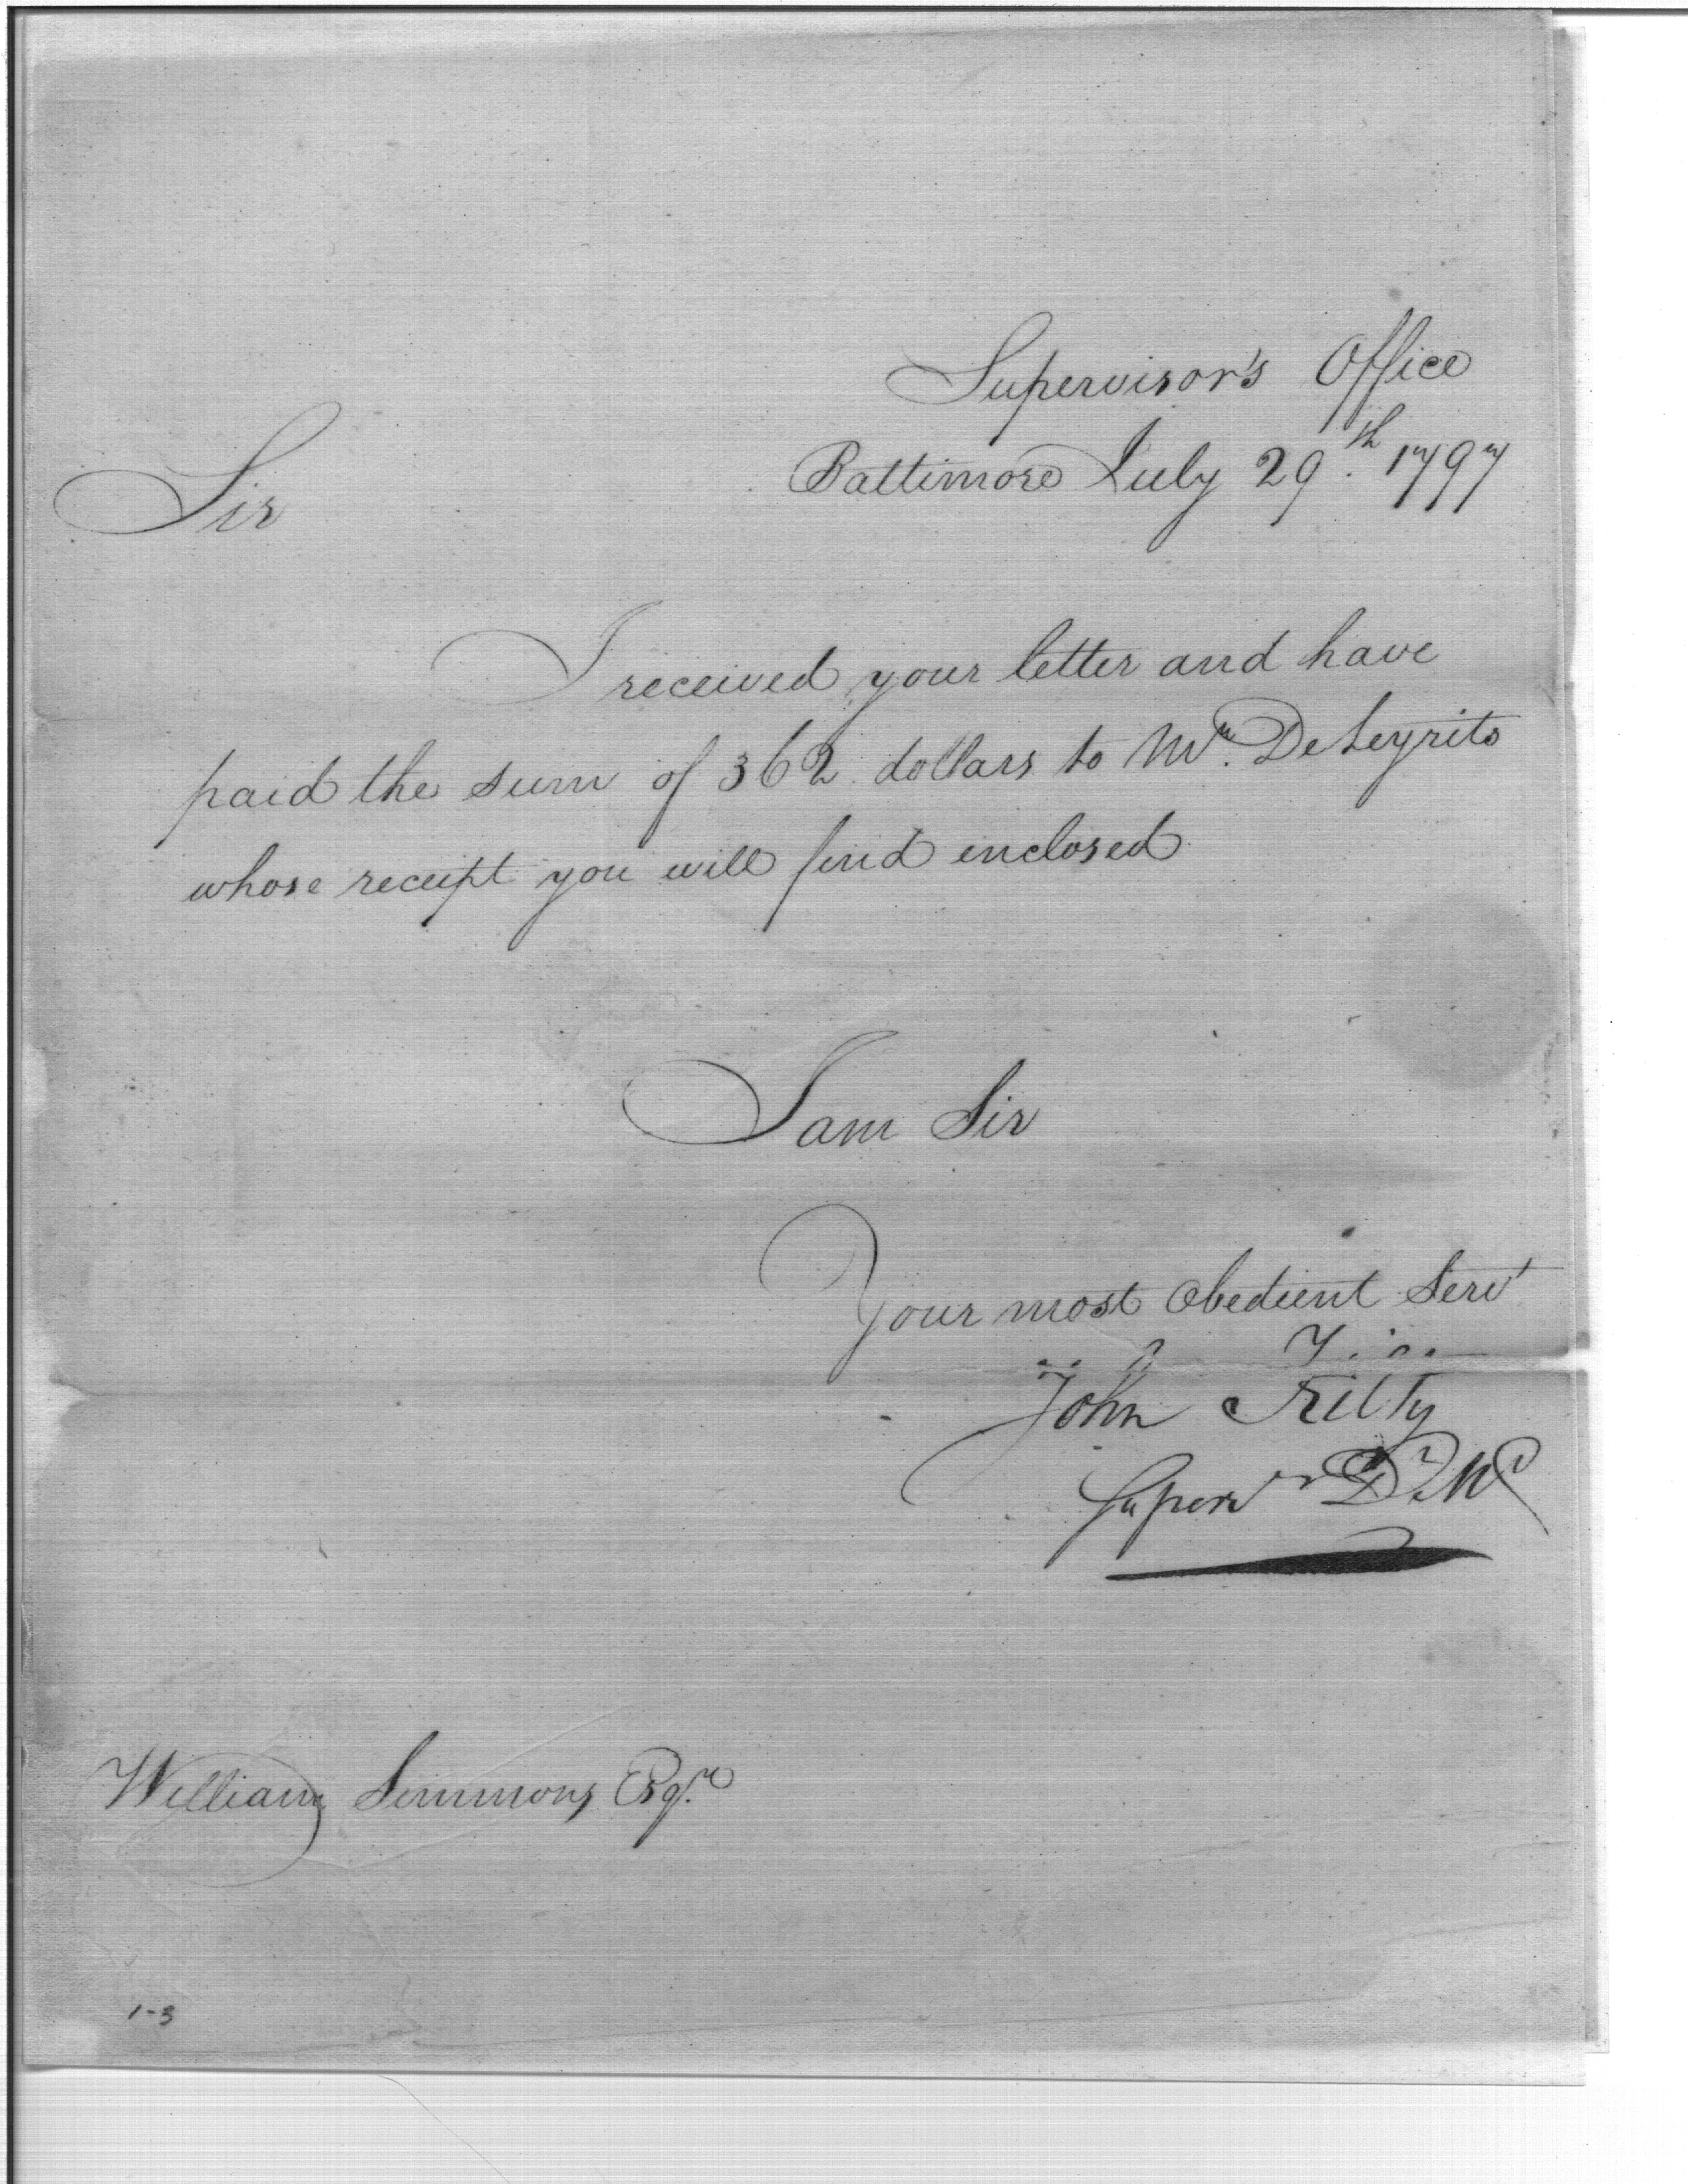 Supervisor's Office
Baltimore July 29th 1797
Sir
I received your letter and have
paid the sum of 362 dollars to Mr. DeLeyrits
whose receipt you will find enclosed
I am Sir
Your most Obedient Servt
John Kilty
Superv
William Simmons Esqre
1-3